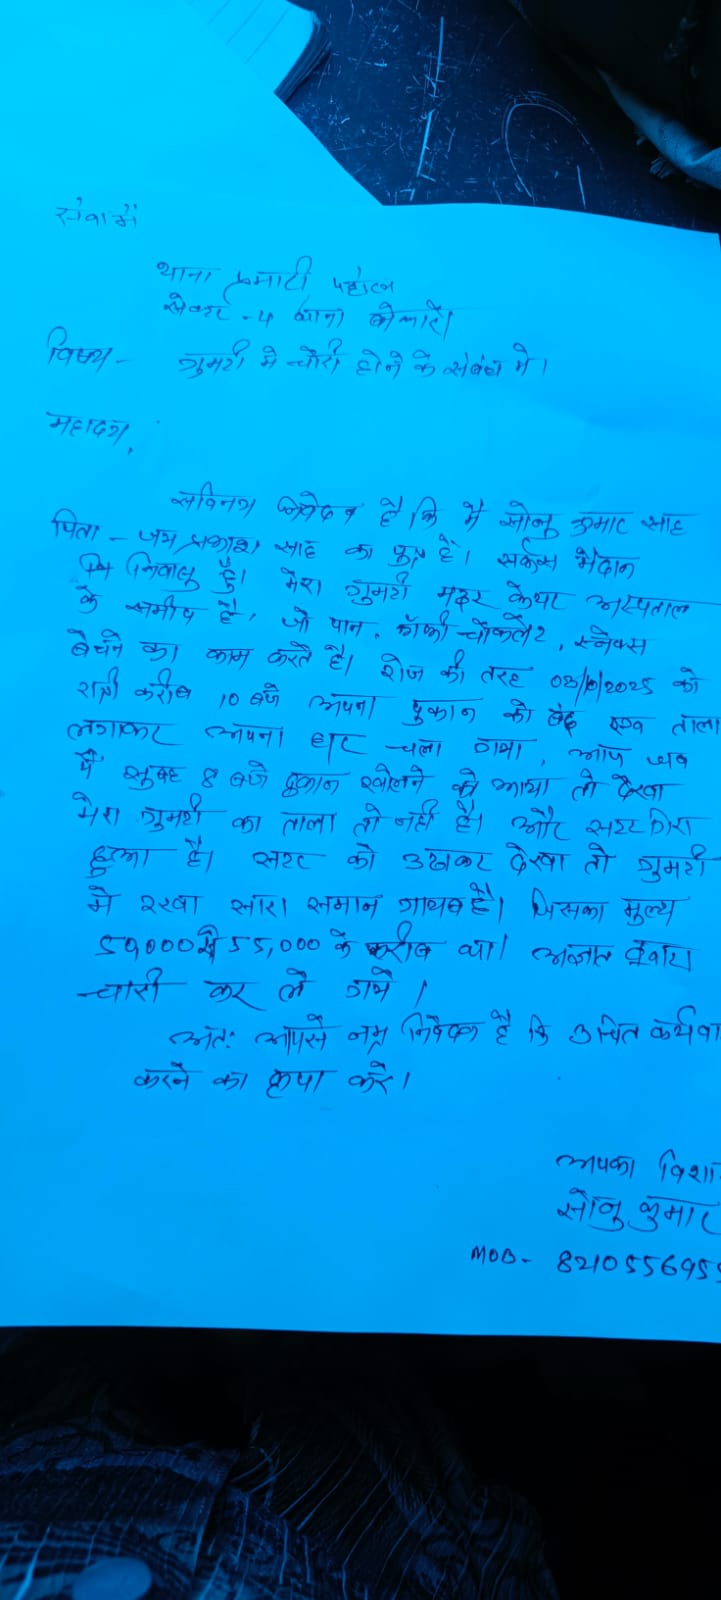 सेवा में
थाना प्रभारी महोदय
सेक्टर - 4 थाना बोकारो।
विषय - गुमटी मे चोरी होने के संबंध मे।
महादय,
सविनय निवेदन है कि मै सोनु कुमार साह
पिता - जय प्रकाश साह का पुत्र हूँ। सर्कस मैदान
निवासु हूँ। मेरा गुमटी मदर केयर अस्पताल
के समीप है, जो पान, टॉफी चॉकलेट, स्नेक्स
बेचने का काम करते है। रोज की तरह को
रात्री करीब 10 बजे अपना दुकान को बंद एवम ताला
लगाकर अपना घर चला गया, आज जब
मैं सुबह 8 बजे दुकान खोलने को आया तो देखा
मेरा गुमटी का ताला तो नही है। और सटर गिरा
हुआ है। सटर को उठाकर देखा तो गुमटी
मे रखा सारा समान गायब है। जिसका मुल्य
50,000 से 55,000 के करीब था। अज्ञात द्वारा
चोरी कर ले गये।
अतः आपसे नम्र निवेदन है कि उचित कार्यवा
करने का कृपा करे।
आपका
सोनु कुमार
MOB - 821055695